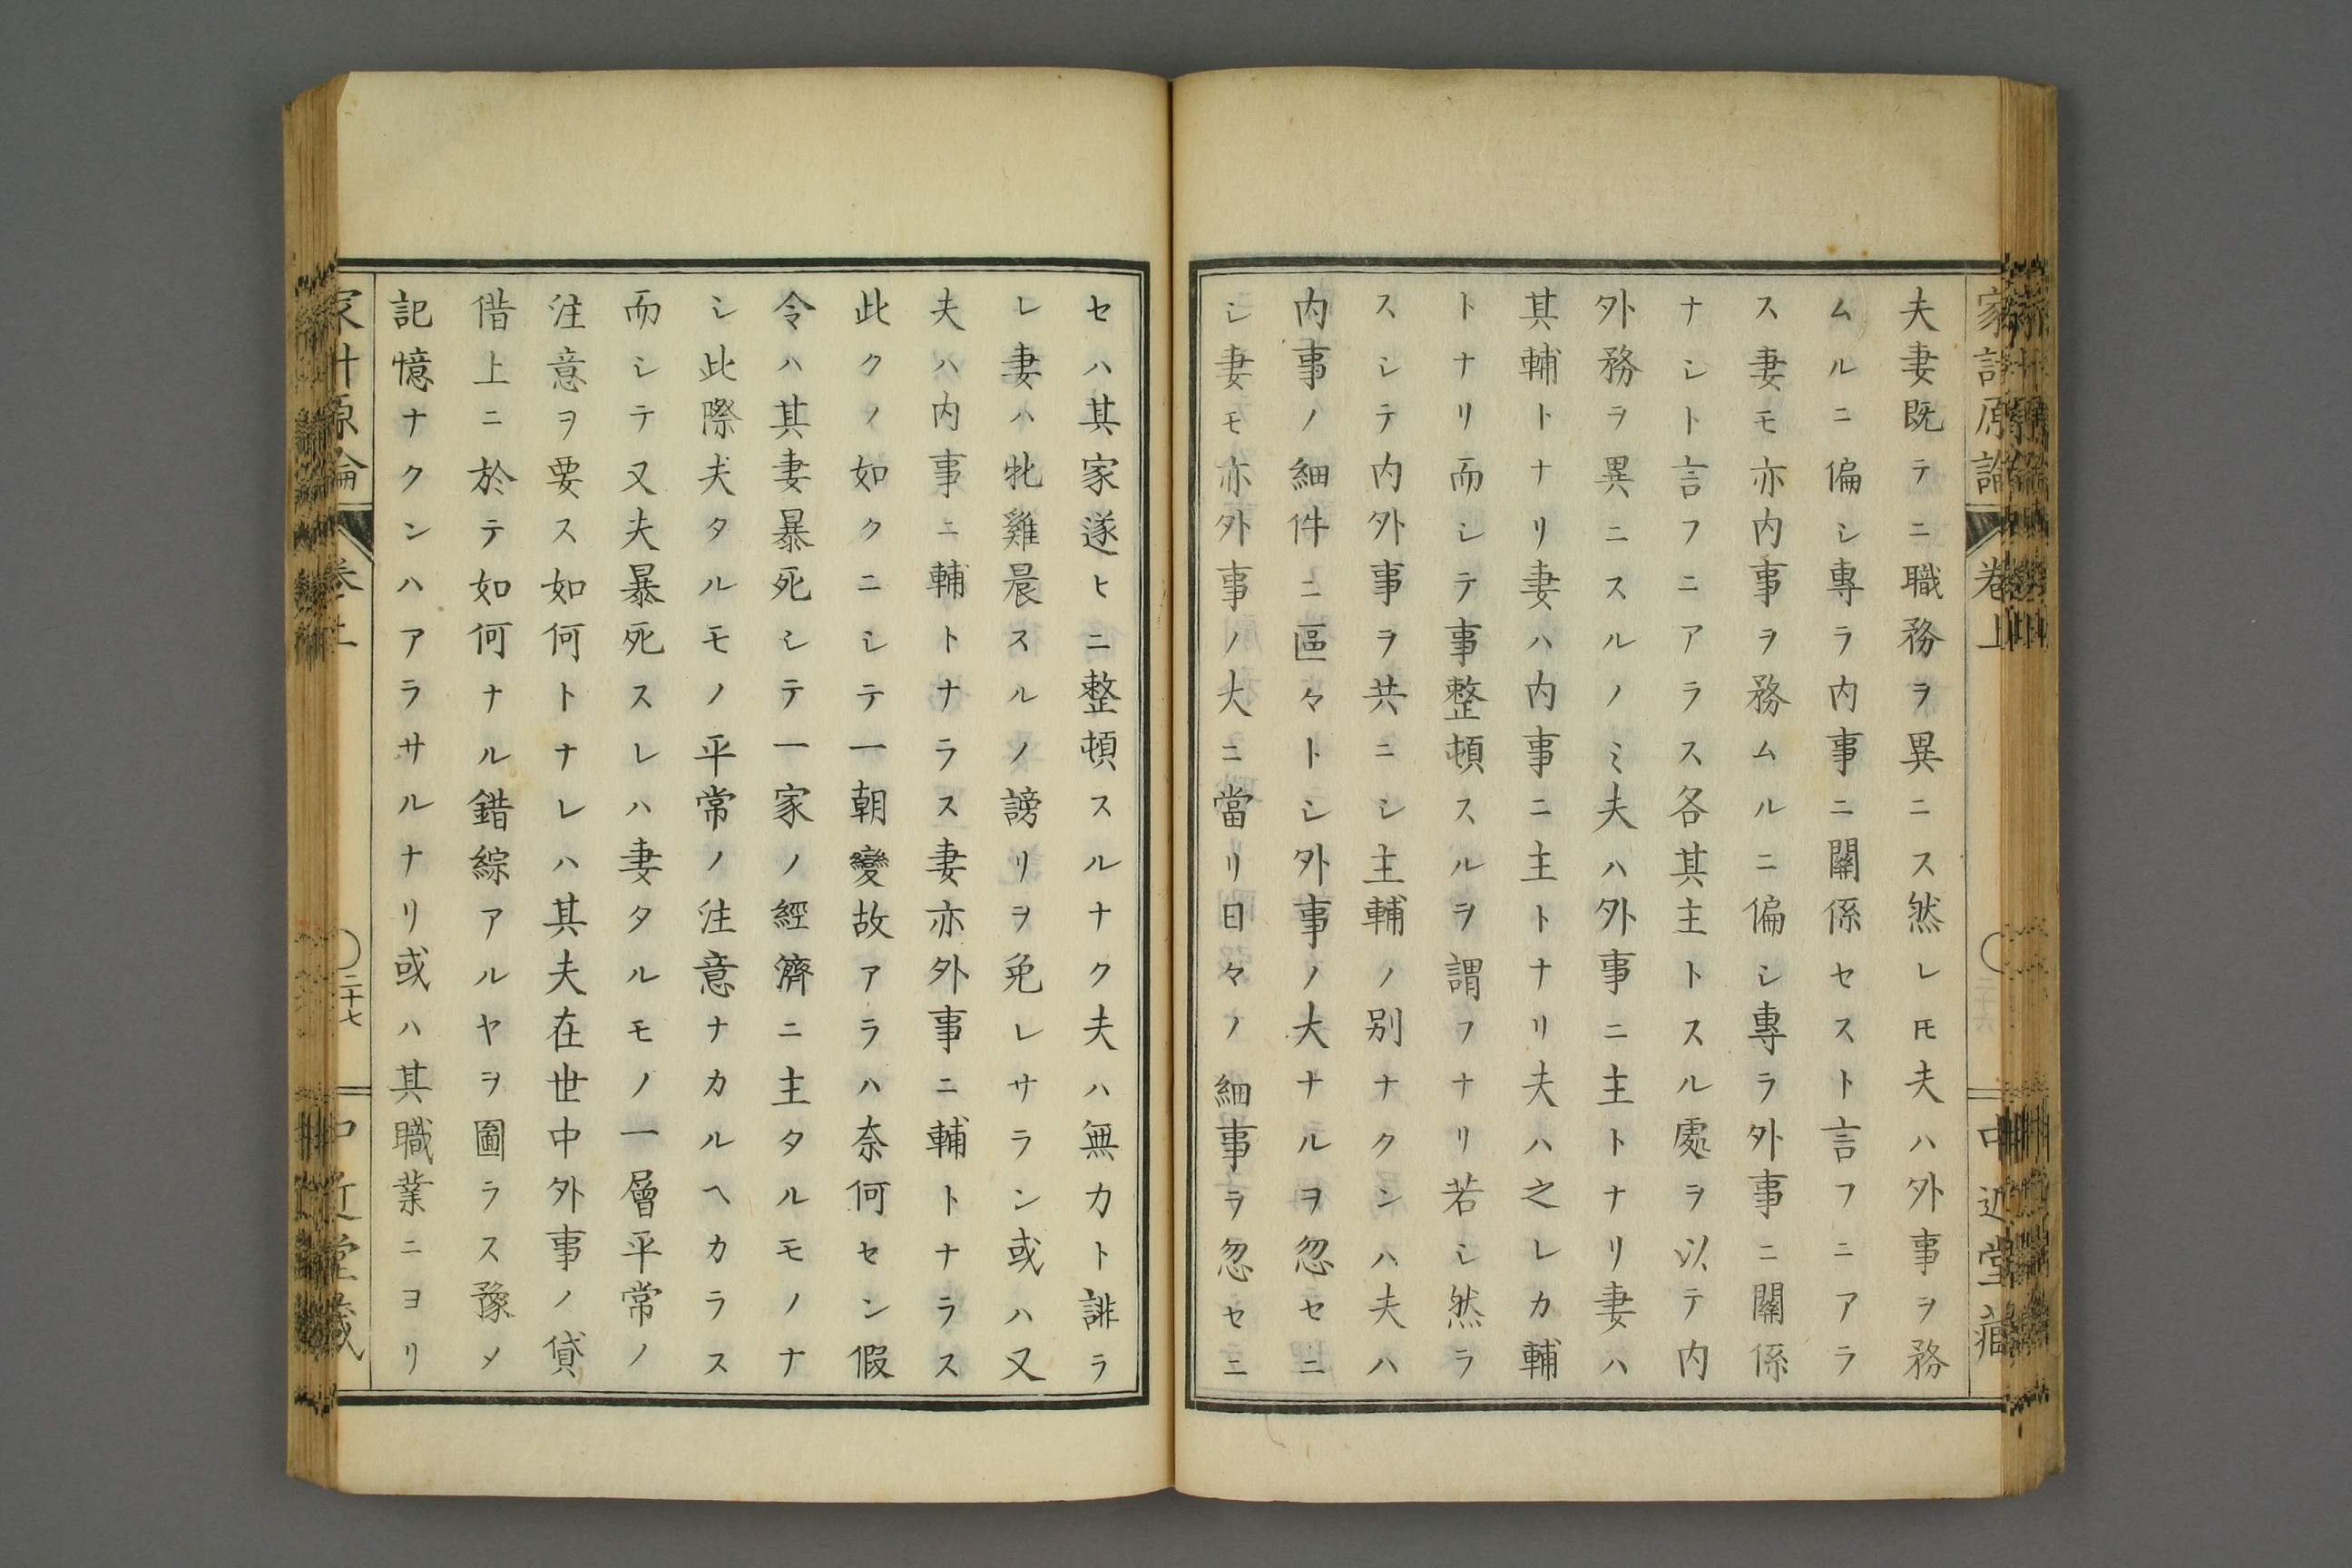 家計原論
卷上
中近堂藏
夫妻既テニ職務ヲ異ニス然レ𪜈夫ハ外事ヲ務
ムルニ偏シ專ラ内事ニ關係セスト言フニアラ
ス妻モ亦内事ヲ務ムルニ偏シ專ラ外事ニ關係
ナシト言フニアラス各其主トスル處ヲ以テ内
外務ヲ異ニスルノミ夫ハ外事ニ主トナリ妻ハ
其輔トナリ妻ハ内事ニ主トナリ夫ハ之レカ輔
トナリ而シテ事整頓スルヲ謂フナリ若シ然ラ
スシテ内外事ヲ共ニシ主輔ノ別ナクンハ夫ハ
内事ノ細件ニ區々トシ外事ノ大ナルヲ忽セニ
シ妻モ亦外事ノ大ニ當リ日々ノ細事ヲ忽セニ
セハ其家遂ヒニ整頓スルナク夫ハ無力ト誹ラ
レ妻ハ牝雞晨スルノ謗リヲ免レサラン或ハ又
夫ハ内事ニ輔トナラス妻亦外事ニ輔トナラス
此クノ如クニシテ一朝變故アラハ奈何セン假
令ハ其妻暴死シテ一家ノ經濟ニ主タルモノナ
シ此際夫タルモノ平常ノ注意ナカルヘカラス
而シテ又夫暴死スレハ妻タルモノ一層平常ノ
注意ヲ要ス如何トナレハ其夫在世中外事ノ貸
借上ニ於テ如何ナル錯綜アルヤヲ圖ラス豫メ
記憶ナクンハアラサルナリ或ハ其職業ニヨリ
家計原論
卷上
二十七
中近堂藏